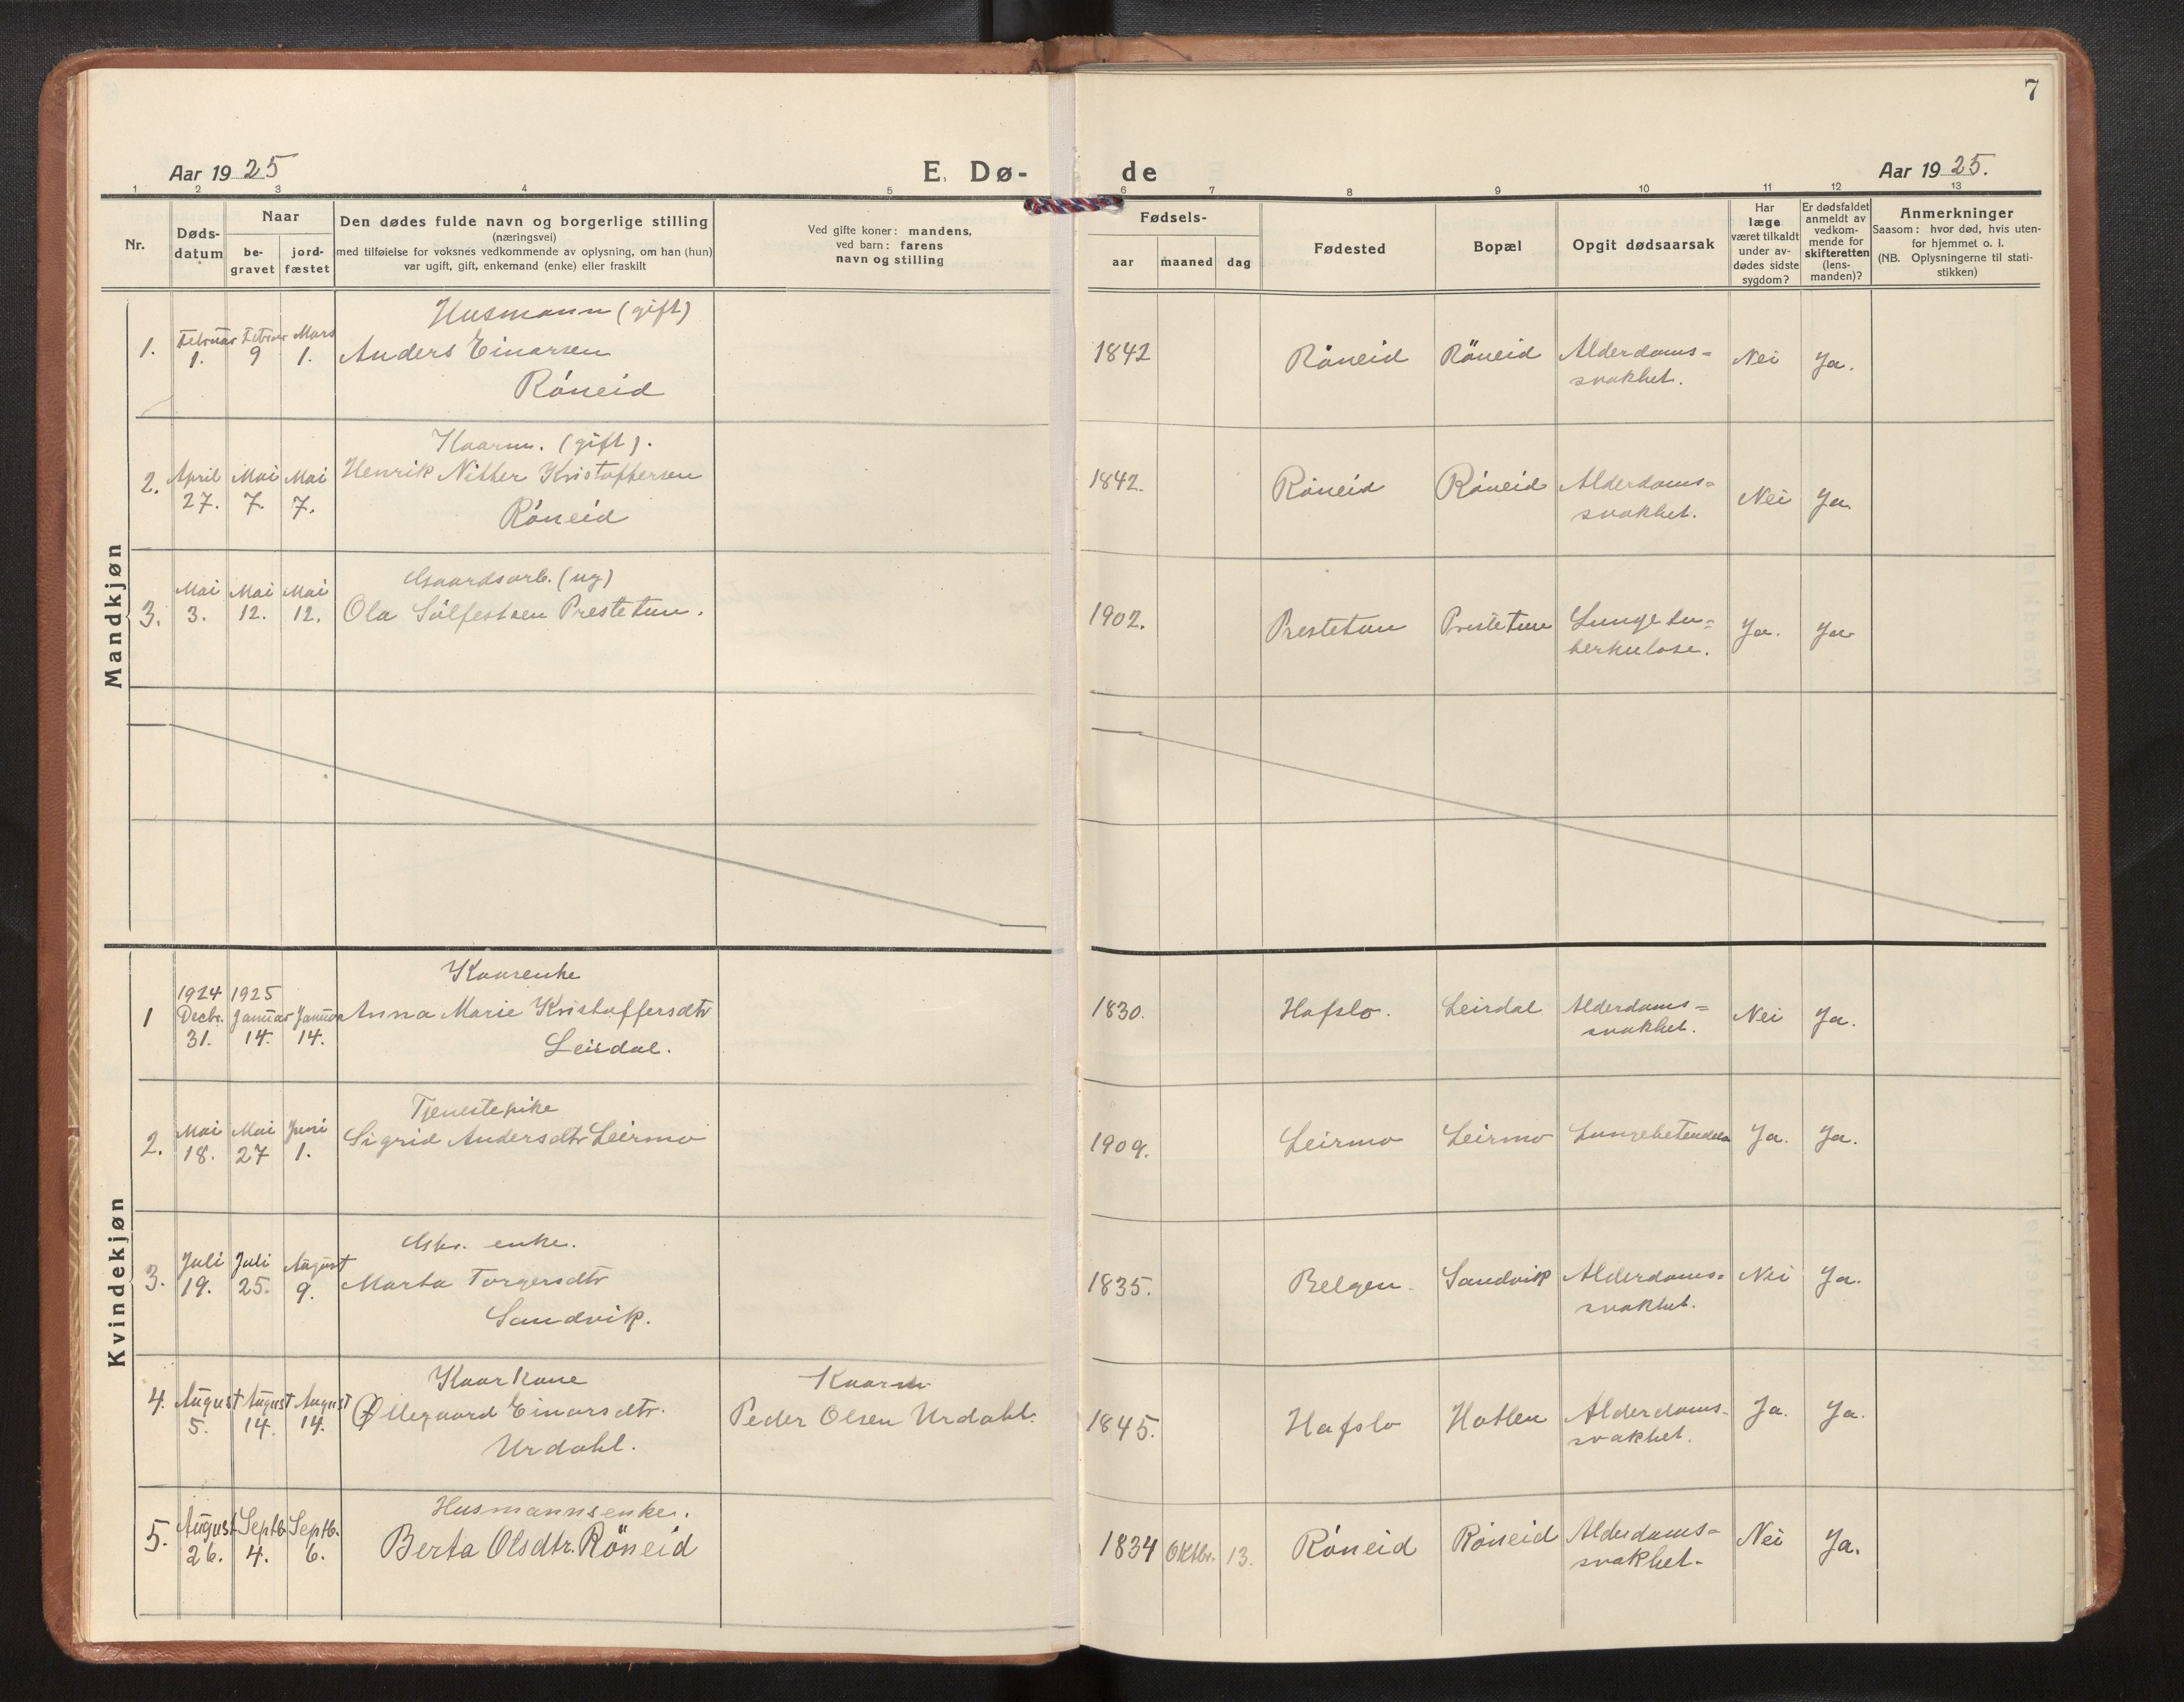 7
Aar 1925
E. Dø-
de
Aar 1925.
1 2 3 4 5 6 7 8 9 10 11 12 13
Nr.
Døds-
datum
Naar
be-
gravet
jord-
fæstet
Den dødes fulde navn og borgerlige stilling
(næringsvei)
med tilføielse for voksnes vedkommende av oplysning, om han (hun)
var ugift, gift, enkemand (enke) eller fraskilt
Ved gifte koner: mandens,
ved barn: farens
navn og stilling
Fødsels-
aar maaned dag
Fødested
Bopæl
Opgit dødsaarsak
Har
læge
været tilkaldt
under av-
dødes sidste
sygdom?
Er dødsfaldet
anmeldt av
vedkom-
mende for
skifteretten
(lens-
manden)?
Anmerkninger
Saasom: hvor død, hvis uten-
for hjemmet o. l.
(NB. Oplysningerne til stati-
stikken)
Mandkjøn
Husmann (gift)
1. Februar 1. Februar 9 Mars 1. Anders Einarsen
Röneid
1842 Röneid Röneid Alderdoms=
svakhet. Nei Ja.
Kaarm. (gift).
2. April 27. Mai 7. Mai 7. Henrik Nitter Kristoffersen
Röneid
1842. Röneid Röneid Alderdoms=
svakhet. Nei Ja.
Gaardsarb. (ug)
3. Mai 3. Mai 12. Mai 12. Ola Sölfestsen Prestetun.
1902. Prestetun Prestetun Lungetu=
berkulose. Ja. Ja
Kvindekjøn
Kaarenke
1 1924 Decbr. 31. 1925 Januar 14. Januar 14. Anna Marie Kristoffersdtr
Leirdal.
1830. Hafslo. Leirdal Alderdoms=
svakhet. Nei Ja.
Tjenestepike
2. Mai 18. Mai 27 Juni 1. Sigrid Andersdtr Leirmo
1909. Leirmo Leirmo Lungebetendelse Ja. Ja.
Gbr. enke.
3. Juli 19. Juli 25. August 9. Marta Torgersdtr
Sandvik.
1835. Belgen Sandvik Alderdoms=
svakhet. Nei Ja.
Kaarkone
4. August 5. August 14. August 14. Øllegaard Einarsdtr.
Urdahl.
Kaarm.
Peder Olsen Urdahl.
1845. Hafslo Hatlen Alderdoms-
svakhet. Ja. Ja.
Husmannsenke.
5. August 26. Septb. 4. Septb. 6. Berta Olsdtr. Röneid
1834 Oktbr. 13. Röneid Röneid Alderdoms=
svakhet. Nei Ja.